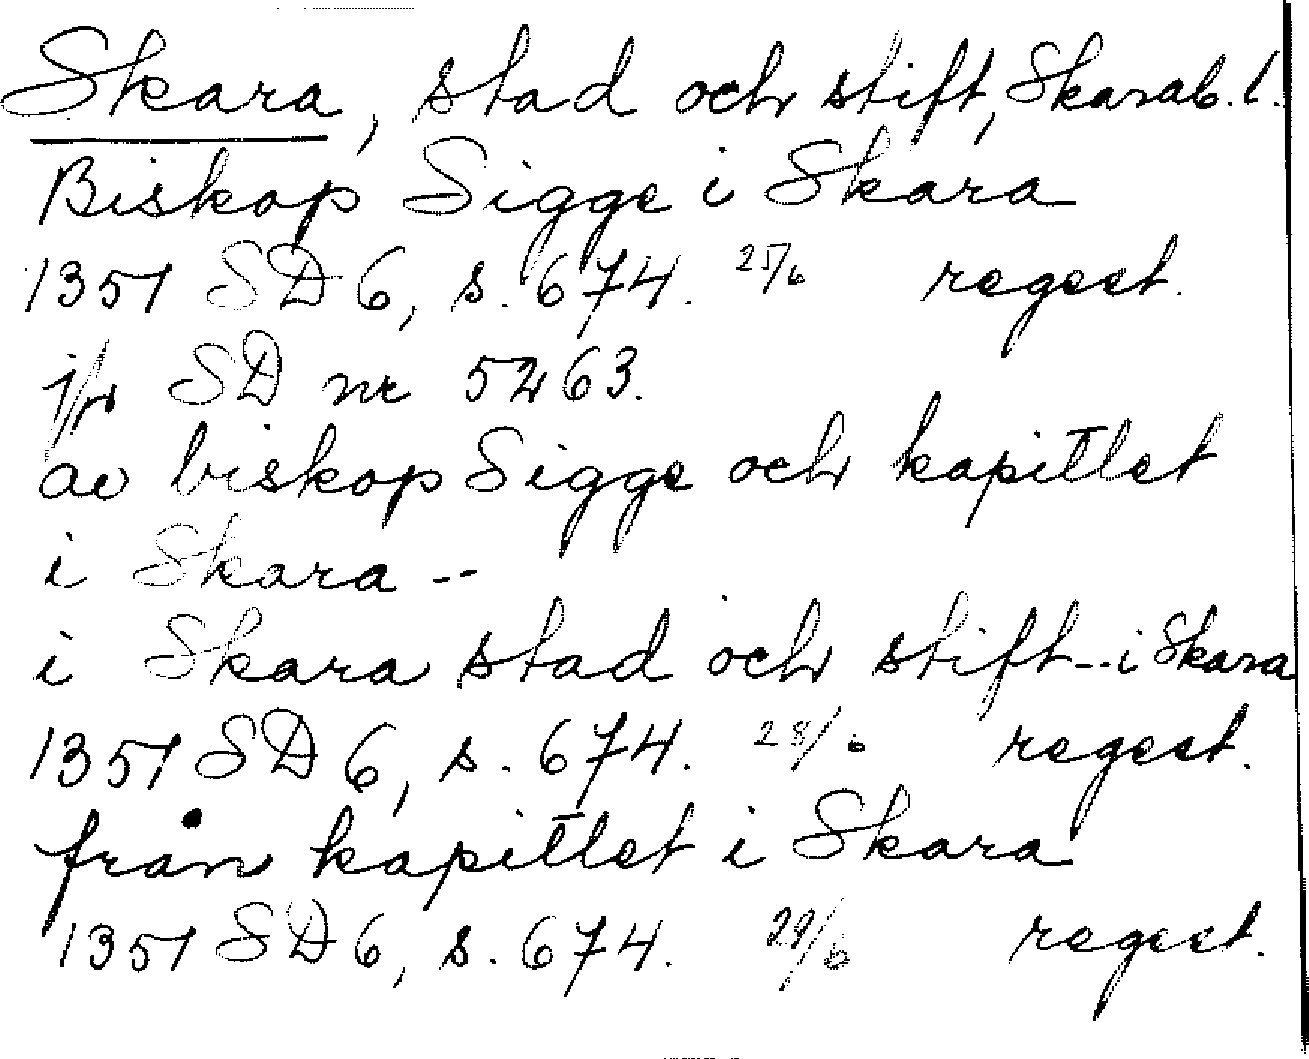 Skara, stad och stift, Skarab. l.
Biskop Sigge i Skara
1351 SD 6, s. 674. 25/6 regest.
jfr SD nr 5263.
av biskop Sigge och kapitlet
i Skara --
i Skara stad och stift -- i Skara
1351 SD 6, s. 674. 28/6 regest.
från kapitlet i Skara
1351 SD 6, s. 674. 29/6 regest.